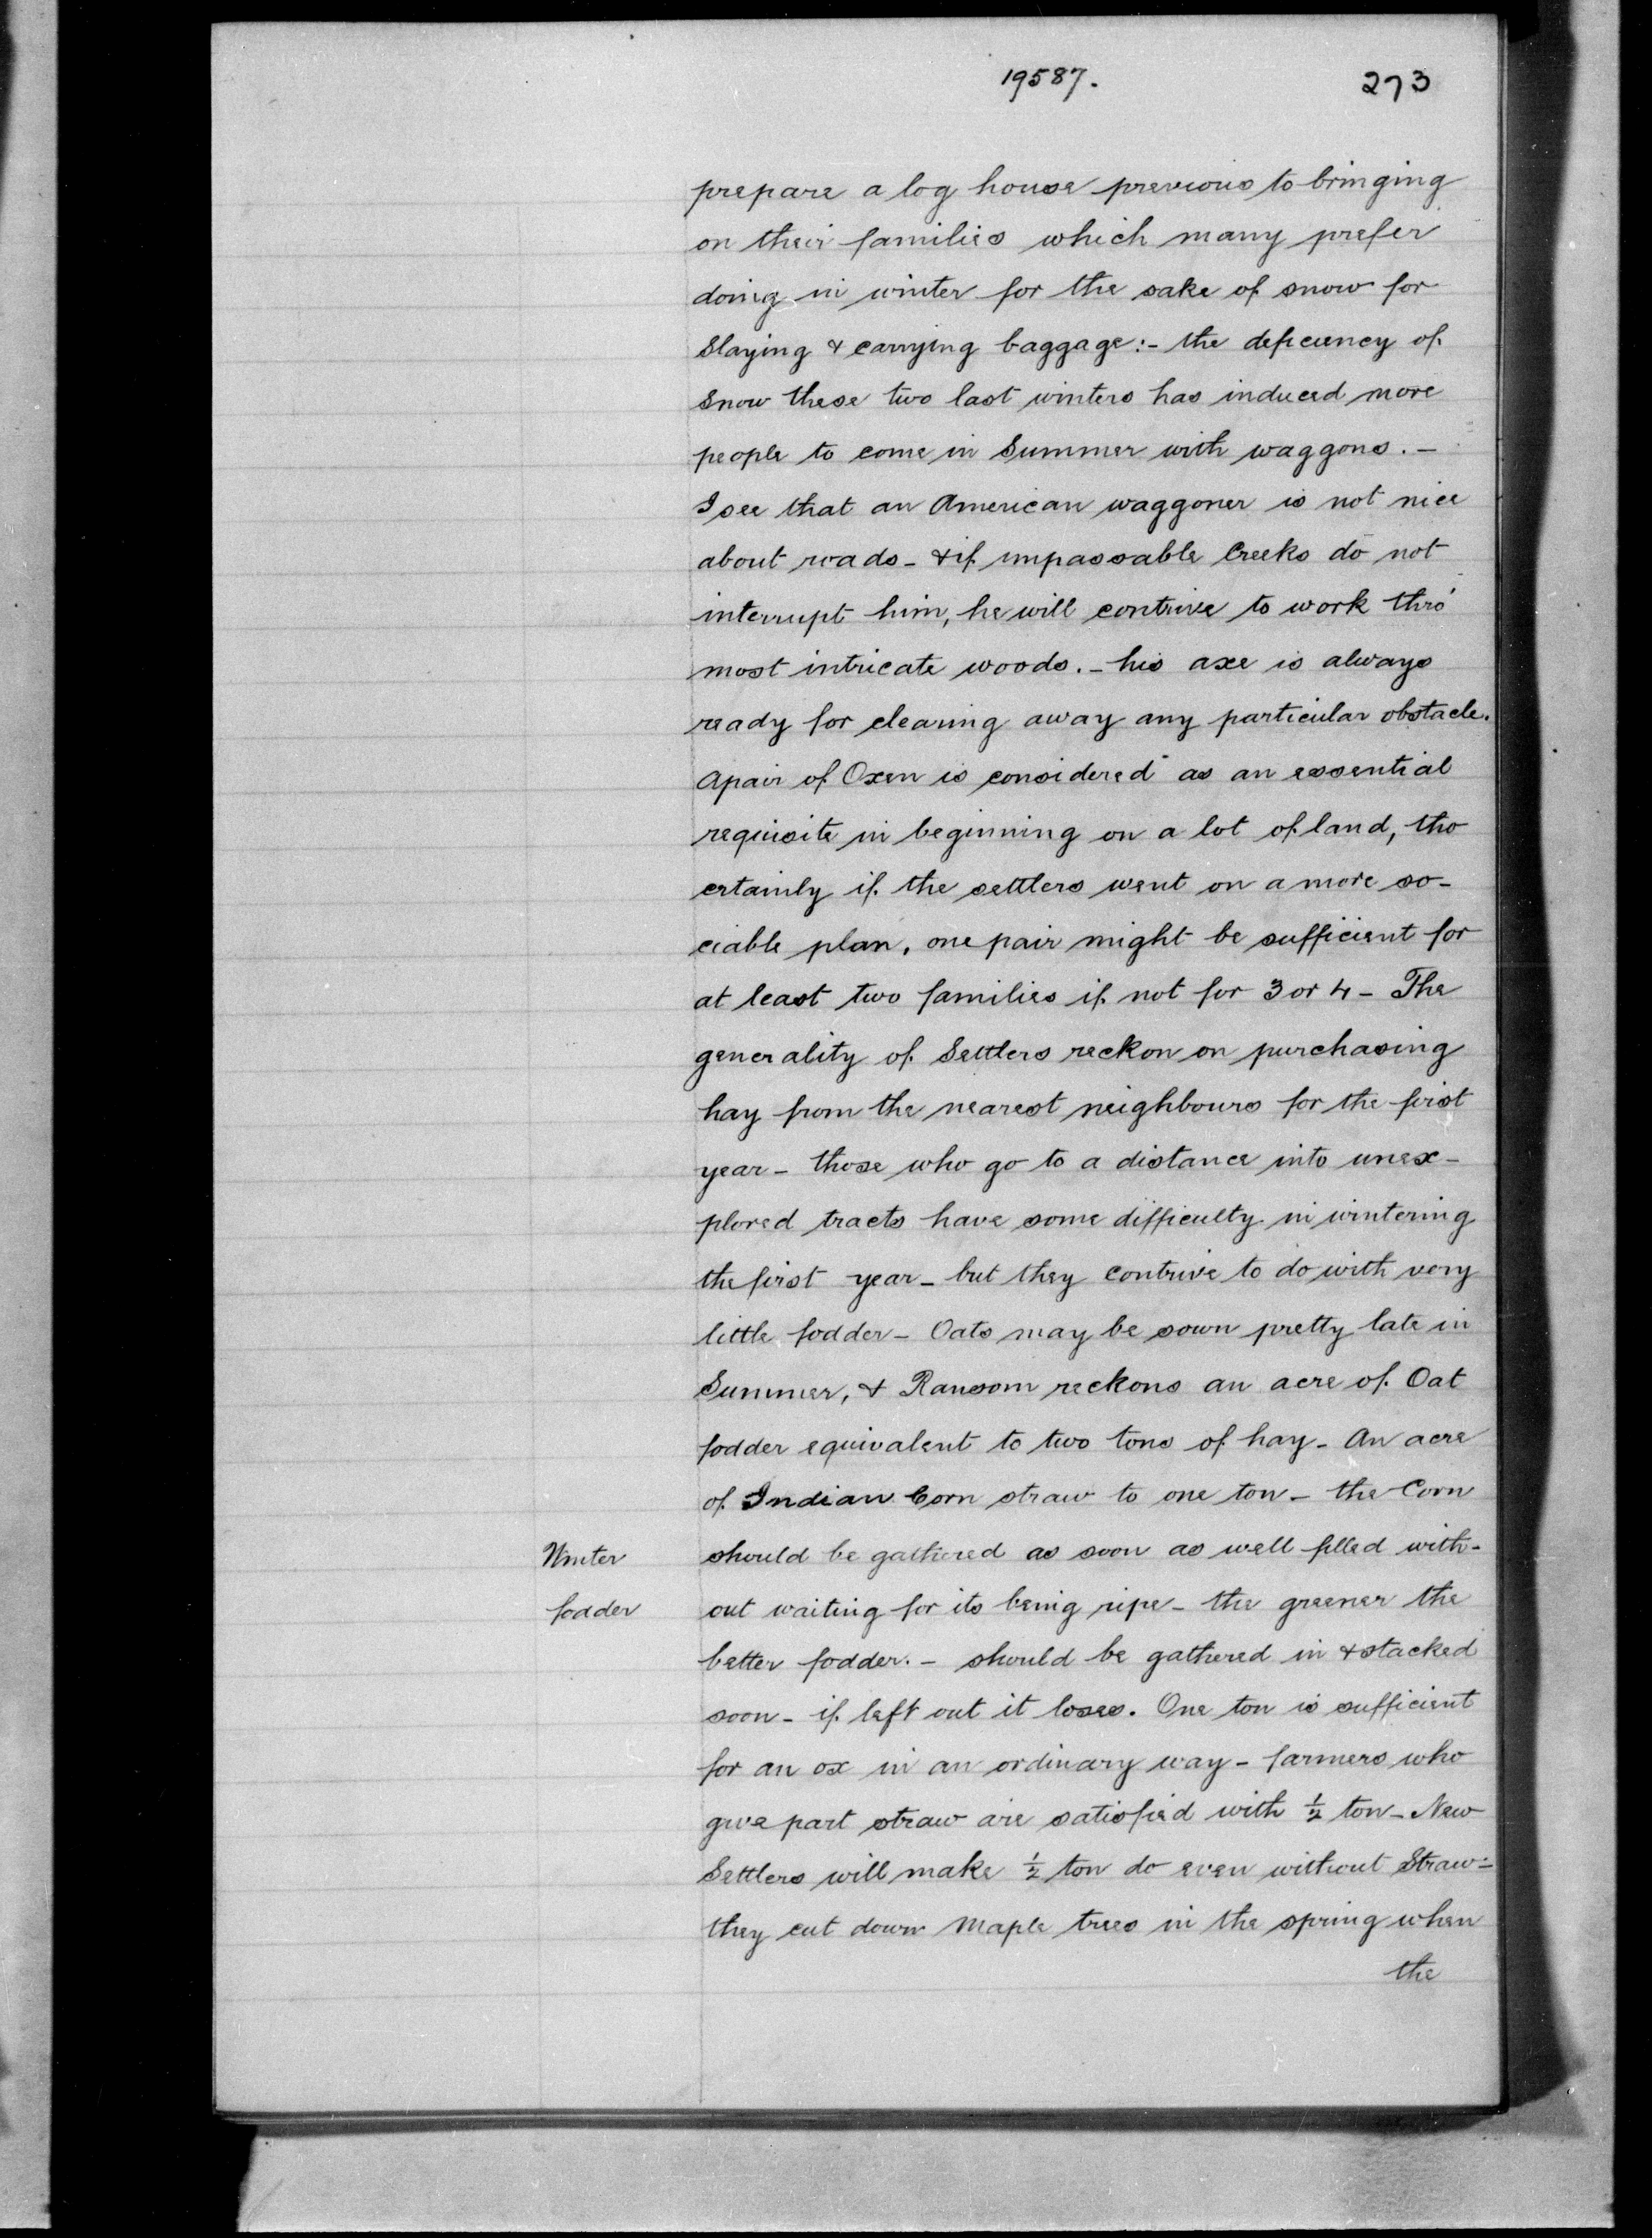 19587.
273
prepare a log house previous to bringing
on their families which many prefer
doing in winter for the sake of snow for
Slaying & carrying baggage:- the deficiency of
Snow these two last winters has induced more
people to come in Summer with waggons. -
I see that an American waggoner is not nice
about roads - & if impassable Creeks do not
interrupt him, he will contrive to work thro'
most intricate woods. - his axe is always
ready for clearing away any particular obstacle.
A pair of Oxen is considered as an essential
requisite in beginning on a lot of land, tho
certainly if the settlers went on a more so-
ciable plan, one pair might be sufficient for
at least two families if not for 3 or 4 - The
generality of Settlers reckon on purchasing
hay from the nearest neighbours for the first
year - those who go to a distance into unex-
plored tracts have some difficulty in wintering
the first year - but they contrive to do with very
little fodder - Oats may be sown pretty late in
Summer, & Ransom reckons an acre of Oat
fodder equivalent to two tons of hay - An acre
of Indian Corn straw to one ton - the Corn
Winter should be gathered as soon as well filled with-
fodder out waiting for its being ripe - the greener the
better fodder. - should be gathered in & stacked
soon - if left out it loses. One ton is sufficient
for an ox in an ordinary way - farmers who
give part straw are satisfied with ½ ton - New
Settlers will make ½ ton do even without Straw -
they cut down Maple trees in the spring when
the